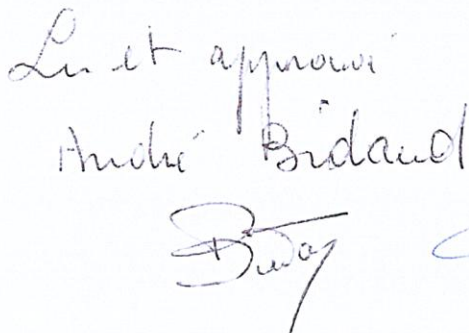 Lu et approuvé
André Bidaud